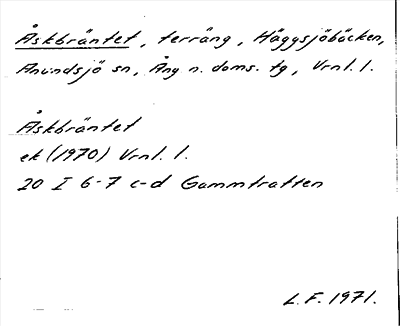 Åskbräntet, terräng, Häggsjöbäcken,
Anundsjö sn, Ång n. doms. tg, Vrnl. l.
Åskbräntet
ek (1970) Vrnl. l.
20 I 6-7 c-d Gammtratten
L. F. 1971.